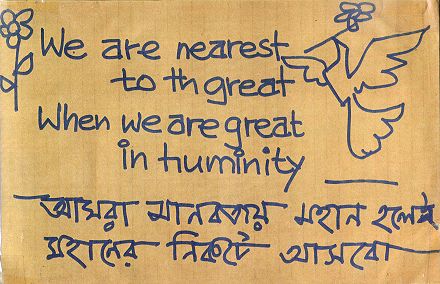 We are nearest
to th great
When we are great
in huminity
আমরা মানবতায় মহান হলেই
মহানের নিকটে আসবো